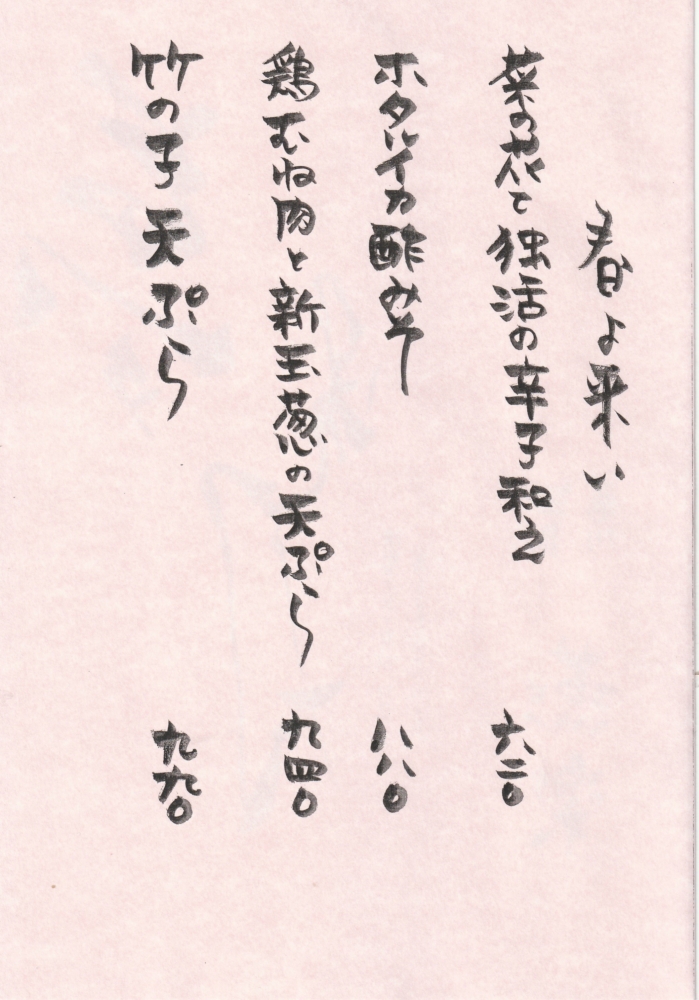 春よ来い
菜の花と独活の辛子和え 六二〇
ホタルイカ酢みそ 八八〇
鶏むね肉と新玉葱の天ぷら 九四〇
竹の子天ぷら 九九〇